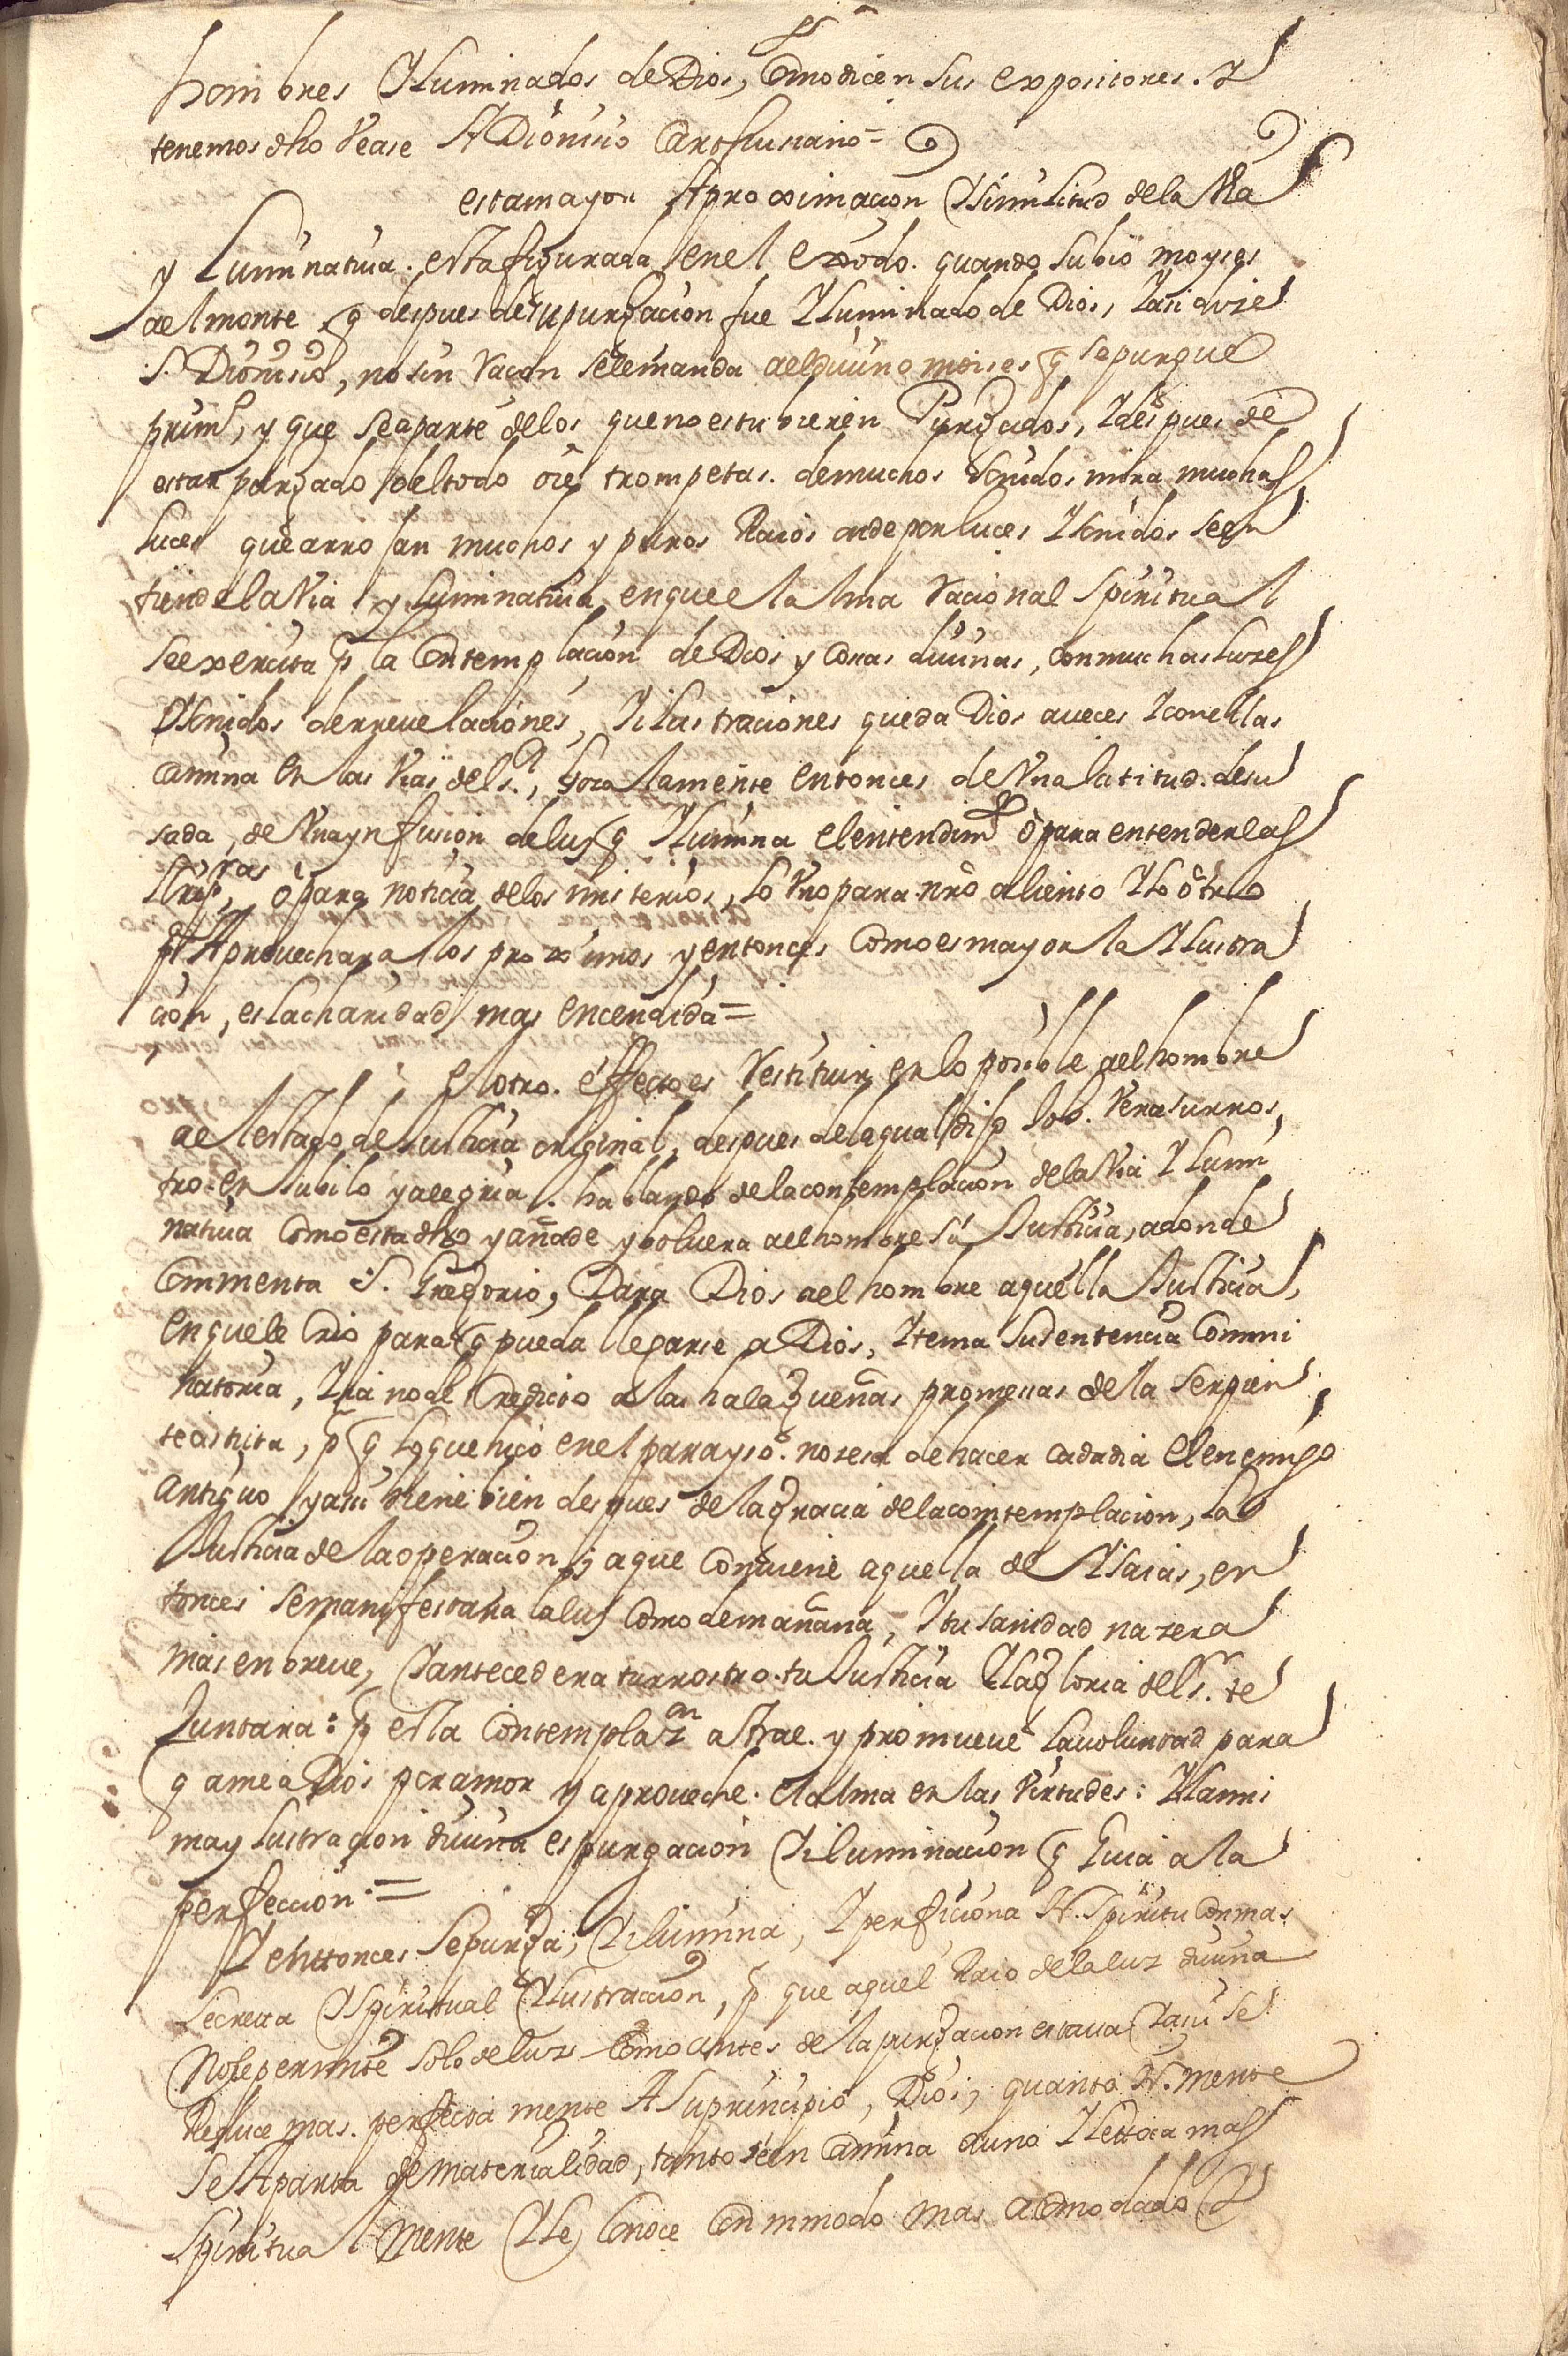 hombres Yluminados de Dios, Como dicen sus expositores. Y
tenemos dho Vease A Dionisio Carthusiano =
esta mayor Aproximacion Y similitud de la Via
y Luminatiua. esta figurada en el exodo. quando subio moyses
ael monte, q despues de su purgacion fue Yluminado de Dios, Y asi dize
S. Dionisio, no sin Racon se le manda ael diuino moises q se purgue
prim.º, y que se aparte de los que no estubieren Purgados, Y despues de
estar purgado del todo oie trompetas. de muchos sonidos mira muchas
luces que arrojan muchos y puros Raios onde por luces Y sonidos se en
tiende la Via y Luminatiua, en que el alma Racional Spiritual
se exercita p.r la Contemplacion de Dios y Cosas diuinas, con muchas luzes
Y sonidos de rreuelaciones, Y ilustraciones que da Dios a ueces Y con ellas
Camina en las Vias del S.r, goza la mente entonces de Vna latitud. desu
sada, de Vna ynfusion de lus q Ylumina el entendim.to ò para entender las
Scrip.ras, ò para noticia de los misterios, lo Vno para nrõ aliento Y lo otro
p.a Aprouechar a los proximos y entonces Como es mayor la Ylustra
cion, es la charidad mas encendida =
El otro. effecto es Restituir en lo posible ael hombre
ael estado de Justicia original, despues de la qual dijo Job. Vera su rros,
tro. en Jubilo y alegria. hablando de la contemplacion de la Via Y Lumi
natiua Como esta dho y añade y boluera ael hombre su Justicia, adonde
Commenta S. Gregorio, Dara Dios ael hombre aquella Justicia,
en que le Crio para q pueda llegarse a Dios, Y tema su sentencia Commi
natoria, Y ia no de Credicto a las halagueñas promesas de la serpien
te astuta, p.r q lo que hiço en el parayso. no sesa de hacer cada dia el enemigo
antiguo y asi Viene bien despues de la gracia de la comtemplacion, la
Justicia de la operacion, y a que Conuiene aquella de Ysaias, en
tonces se manyfestara la lus Como de mañana, Y tu sanidad nazera
mas en breue, Y antecedera tu rrostro. tu Justicia Y la gloria del S.r te
Juntara: p.r esta Contemplaz.on atrae. y promueue la uoluntad para
q ame a Dios por amor y aproueche. el alma en las Virtudes: Y la mis
ma y lustracion diuina es purgacion Y iluminacion q Guia a la
perfeccion. =
Y enttonces se purga, Y ilumina, Y perficiona N. Spiritu Con mas
secreta Y Spiritual Ylustracion, p.r que aquel Raio de la luz diuina
No le permite solo de luz Como antes de la purgacion estaua Y asi se
Reduce mas. perfecta mente A su principio, Dios, quanto N. mente
se Aparta de materialidad, tanto se en Camina a uno Y le ttoca mas
Spiritual Mente Y le Conoce Con mmodo mas acomodado Y